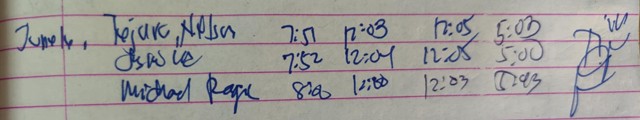 June 4, Tejure, Nelson 7:51 12:03 12:05 5:03
7:52 12:04 12:05 5:00
Michael Roque 8:00 12:00 12:03 5:03